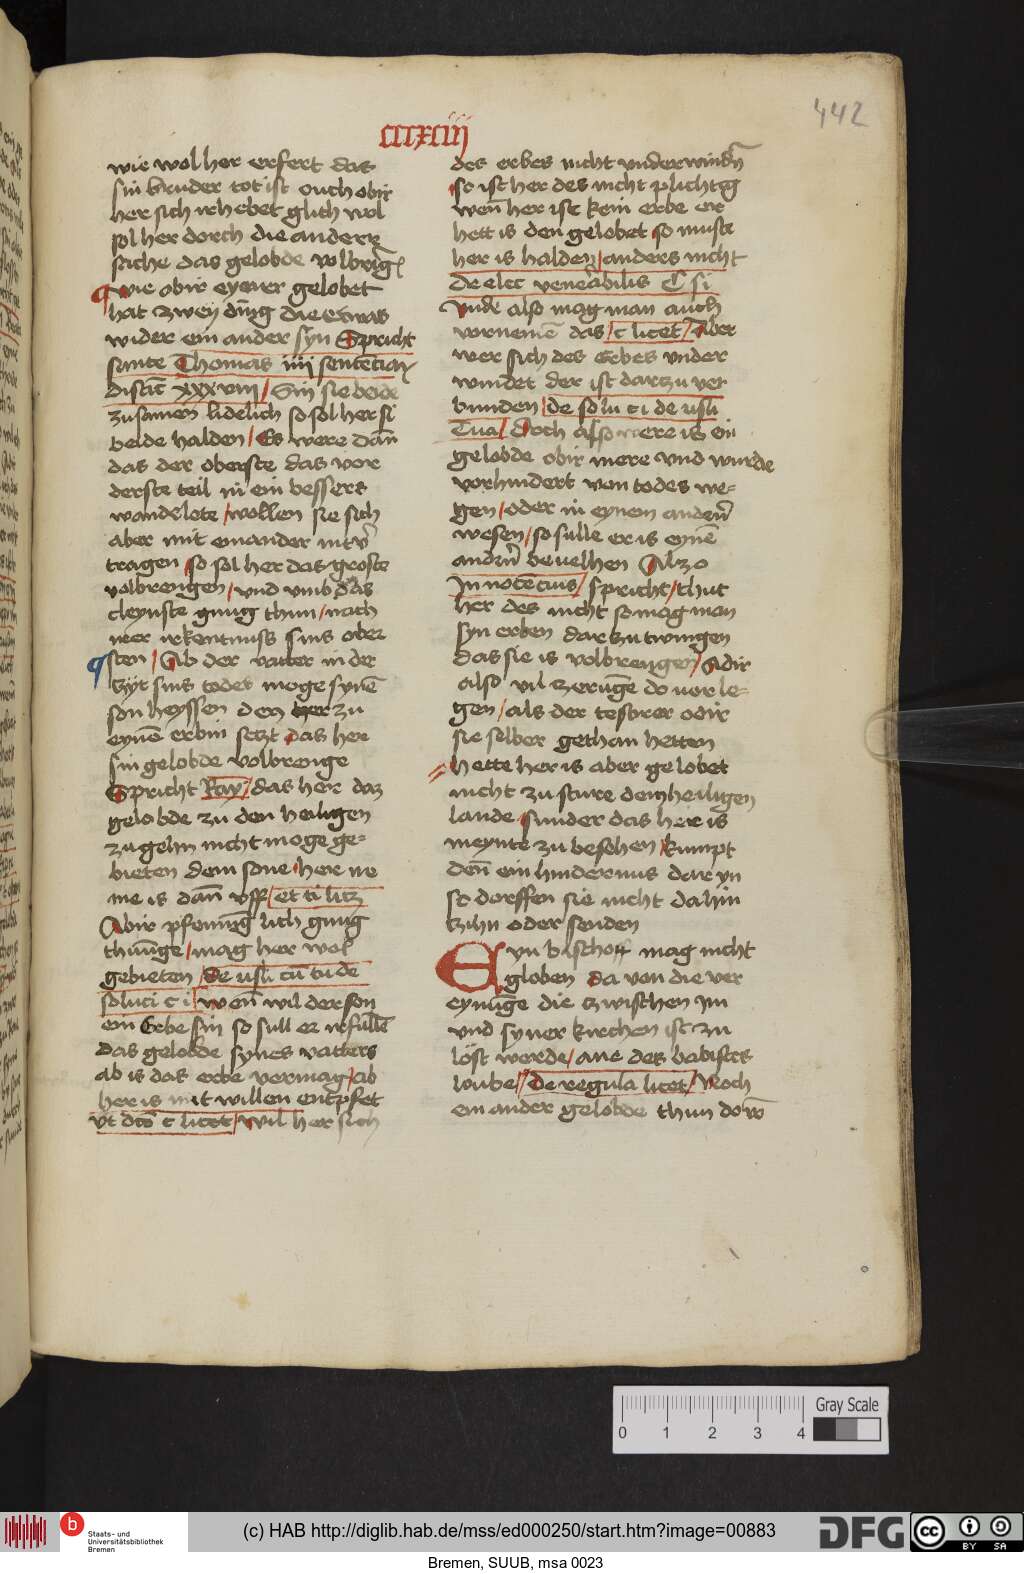 442
cccxciij
wie wol her erfert das
sin bruder tot ist ouch obir
her sich irhebet glich wol
sol her dorch die andere
sache das gelobde volbrīg
wie obir eyner gelobet
hat zwey dīng die etwas
wider ein ander syn Spricht
sante Thomas iiij sentēciaꝝ
distīc xxxviij / Sin sie
zu samen lidelich so sol her si
beide halden / Es were dān
das der oberste das vor
derste teil in ein bessers
wandelete / wollen sie sich
aber mit einander nit
tragen / so sol her das groste
volbrengen / vnd vmb das
cleynste gnug thun / nach
irkentnuss sins ober
sten / Ab der vatter in der
tzyt sins todes moge synē
son heyssen den her zu
eynē erbin setzt das her
sin gelobde volbrenge
Spricht Ray / das here daz
gelobde zu den heiligen
zu gehn nicht moge ge=
bieten dem sone / her ne
me is dān vff / et ti litz
Abir pfennīg lich gnug
thūnge / mag her wol
gebieten / de usu cū tu de
soluci c i / wen wil der son
ein Erbe sin so sull er irfullē
das gelobde synes vatters
ab is das erbe vermag / ab
her is mit willen entpfet
vt dco c licet / wil her sich
des erbes nicht vnderwindn
so ist her des nicht plichtig
wen her ist kein erbe er
hett is den gelobet so muste
her is halden / anders nicht
de elec venerabilis C si
Vnde also mag man auch
vornemē das / c licet / Aber
wer sich des Erbes vnder
windet der ist dartzu ver
bunden / de solu c i de usu
Tua / Doch also were is ein
gelobde obir mere vnd wurde
vorhindert von todes we=
gen / oder in eynem andern
wesen / so sulle er is eynē
andrn bevelhen Alzo
Innocēcius / spricht / thut
her des nicht so mag man
syn erben dar zu twingen
das sie is volbrengen / adir
also vil zerūge do vor le=
gen / als der testirer odir
sie silber gethan hetten
hette her is aber gelobet
nicht zu sture dem heiligen
lande sunder das her is
meynte zu besehen / kumpt
den ein hindernus dar yn
so dorffen sie nicht dahin
tzihn oder senden
Eyn bischoff mag nicht
globen da von die ver
eynūge die tzwischen ym
vnd syner kirchen ist zu
löst werde / ane des babistes
loube / de regula licet / Noch
ein ander gelobde thun dorō
0 1 2 3 4
Gray Scale
b
Staats- und
Universitätsbibliothek
Bremen
(c) HAB http://diglib.hab.de/mss/ed000250/start.htm?image=00883
DFG
cc BY SA
Bremen, SUUB, msa 0023